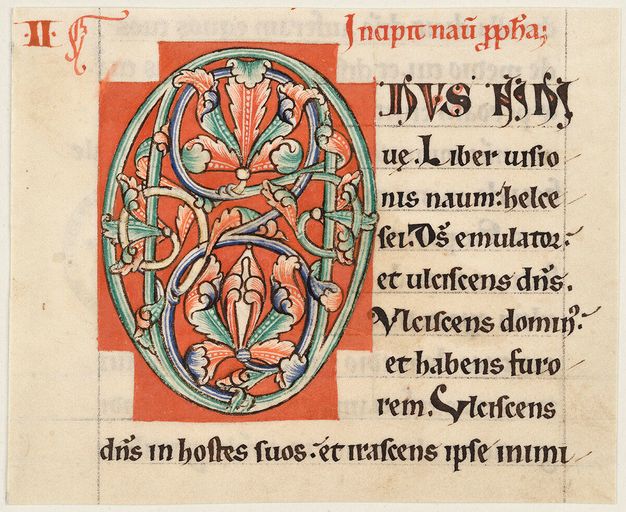 ·II· Incipit naū ꝓpħa;
ONUS NINI
uę. Liber uisio
nis naum: helce
sei. Dſ̄ emulator:
et ulciscens dn̄s.
Vlciscens domin᷒.
et habens furo
rem. Vlciscens
dn̄s in hostes suos. et irascens ipse inimi